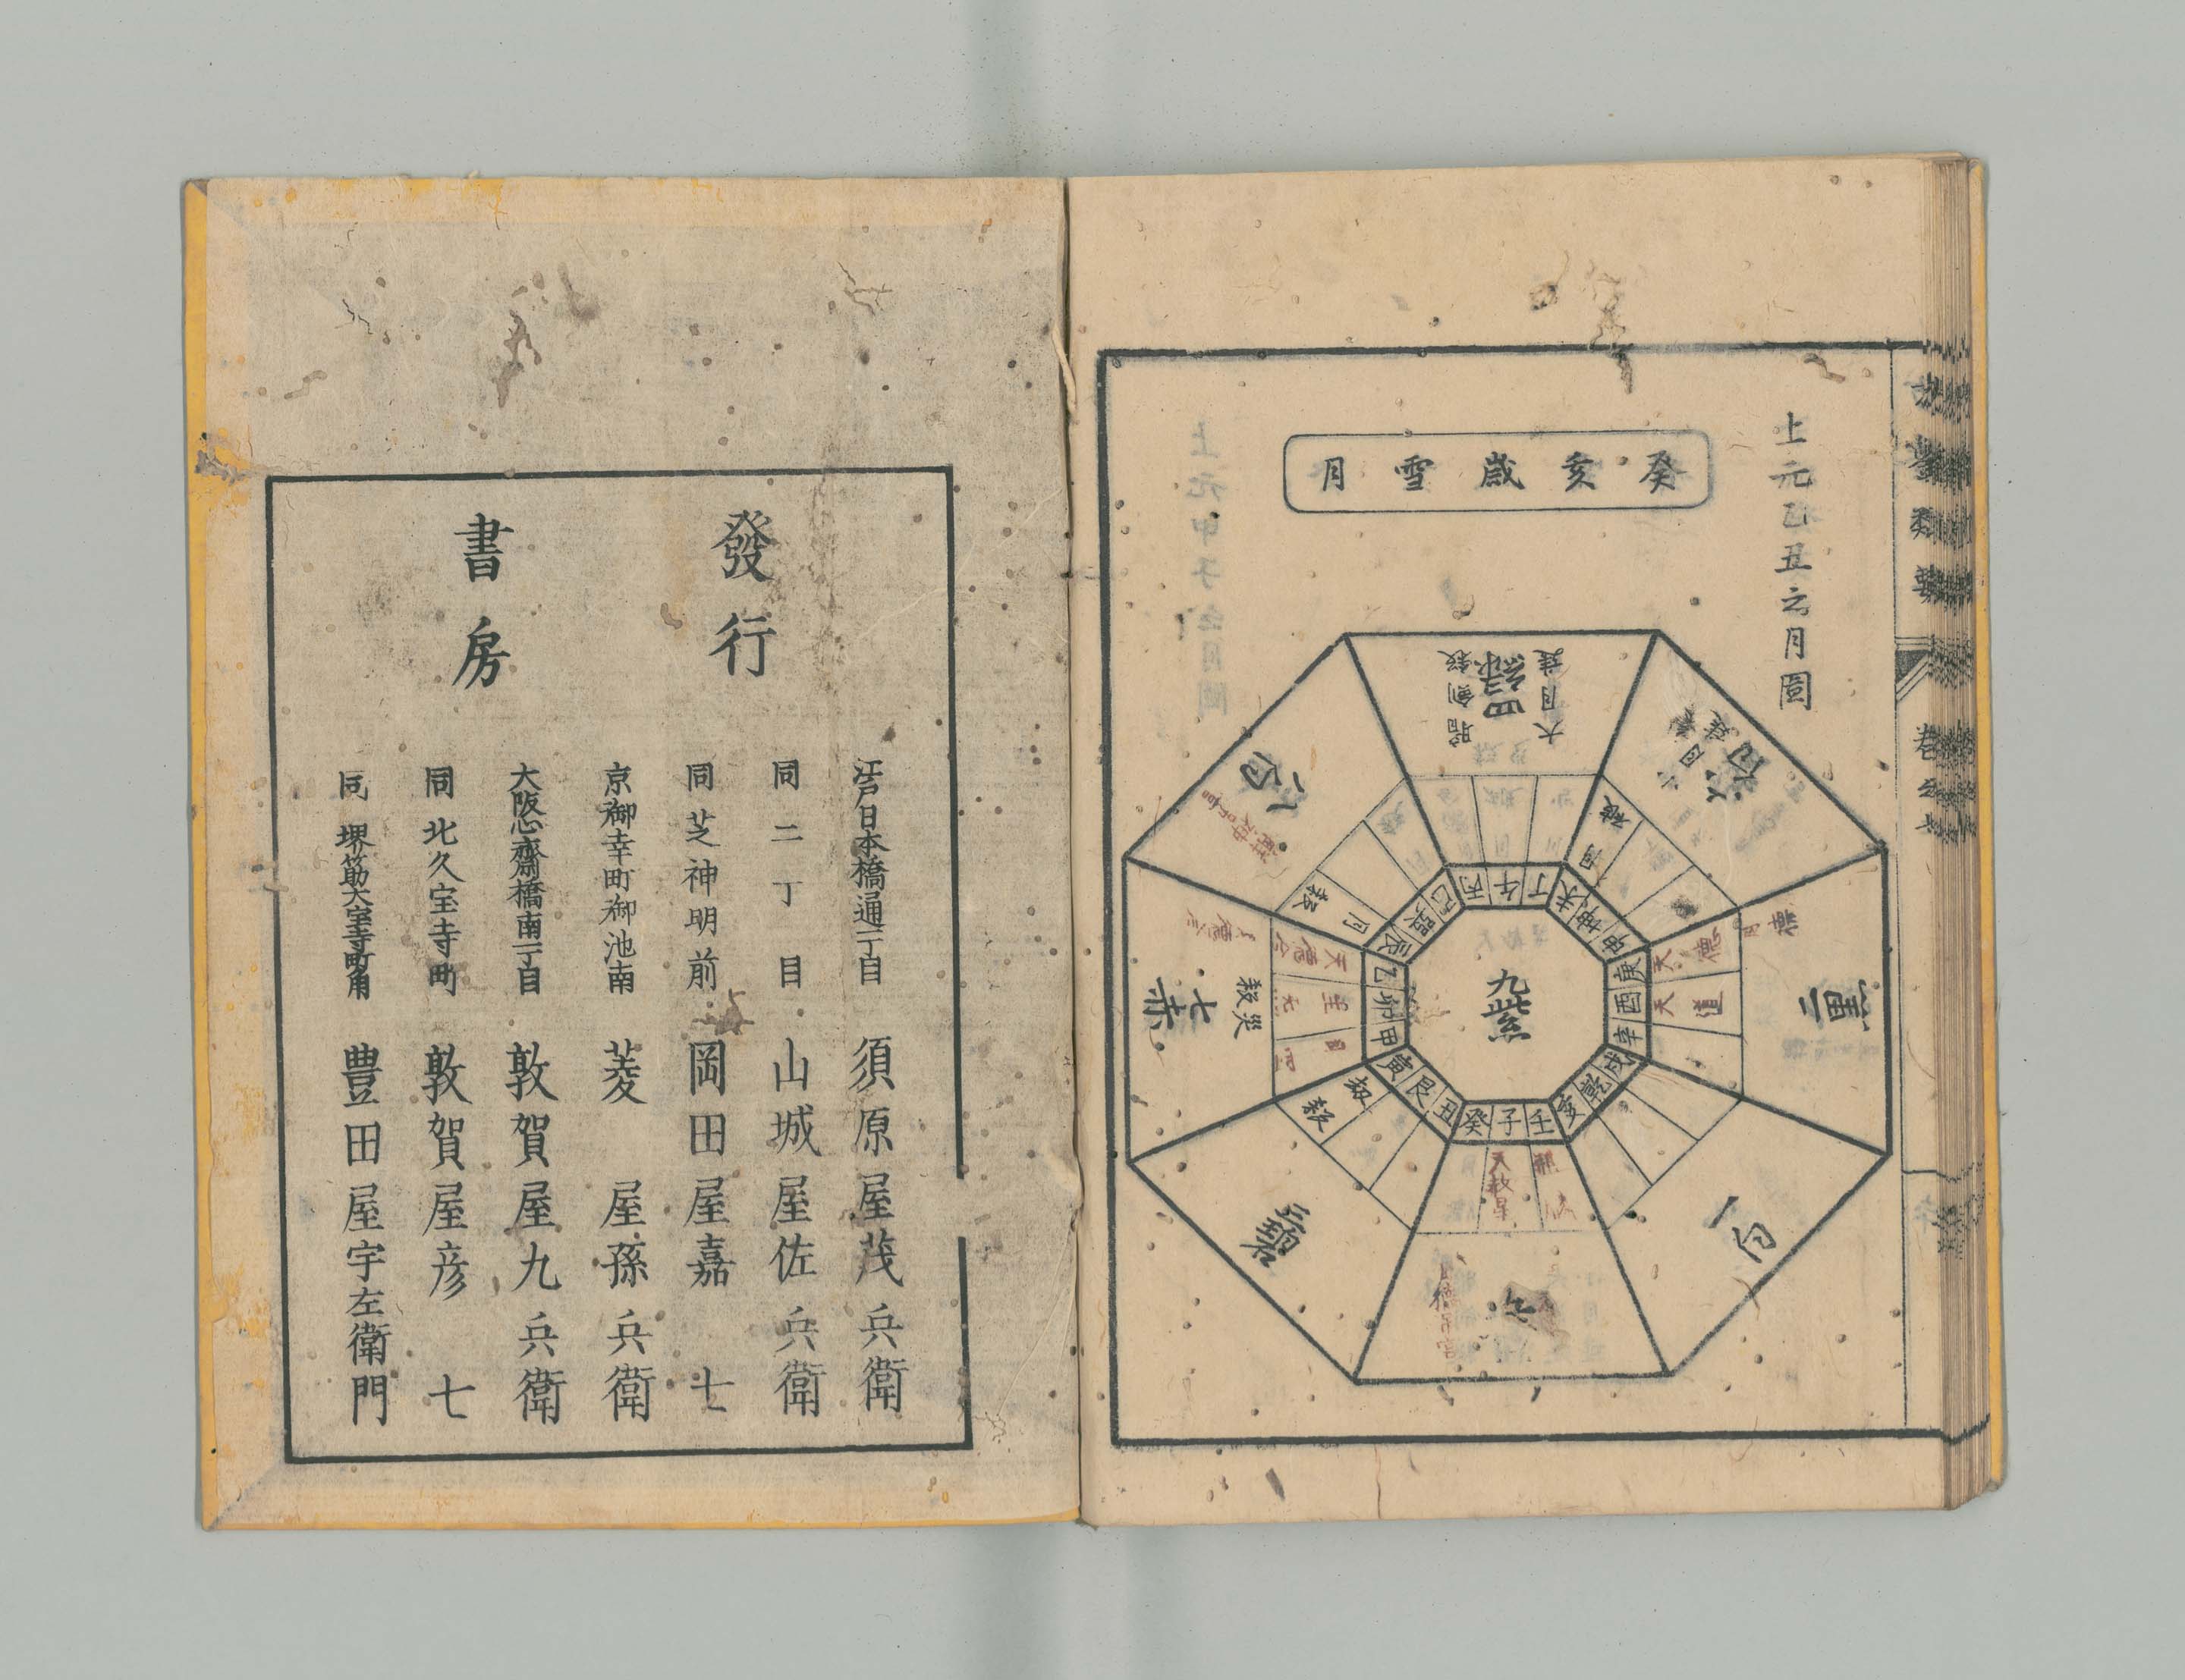 上元乙丑之月圖
癸亥歳雪月
九紫
四緑
大月建
暗劍殺
六白
二黒
一白
五黄
三碧
七赤
災殺
八白
丙午丁
未坤申
庚酉辛
戌乾亥
壬子癸
丑艮寅
甲卯乙
辰巽巳
天德
月德
天道
天赦星
發行
書房
江戸日本橋通一丁目 須原屋茂兵衛
同二丁目 山城屋佐兵衛
同芝神明前 岡田屋嘉七
京御幸町御池南 菱屋孫兵衛
大阪心齋橋南一丁目 敦賀屋九兵衛
同北久宝寺町 敦賀屋彦七
同堺筋大宝寺町角 豊田屋宇左衛門